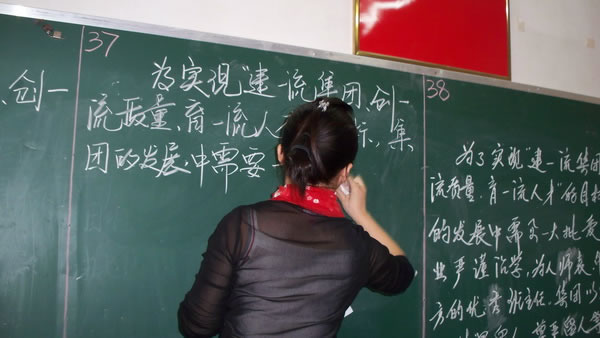 、创一
37
为实现"建一流集团、创一
流质量、育一流人 标,集
团的发展中需要一
38
为了实现"建一流集团
流质量,育一流人才"的目标
的发展中需要一大批爱
业严谨治学,为人师表,
方的优秀班主任,集团以